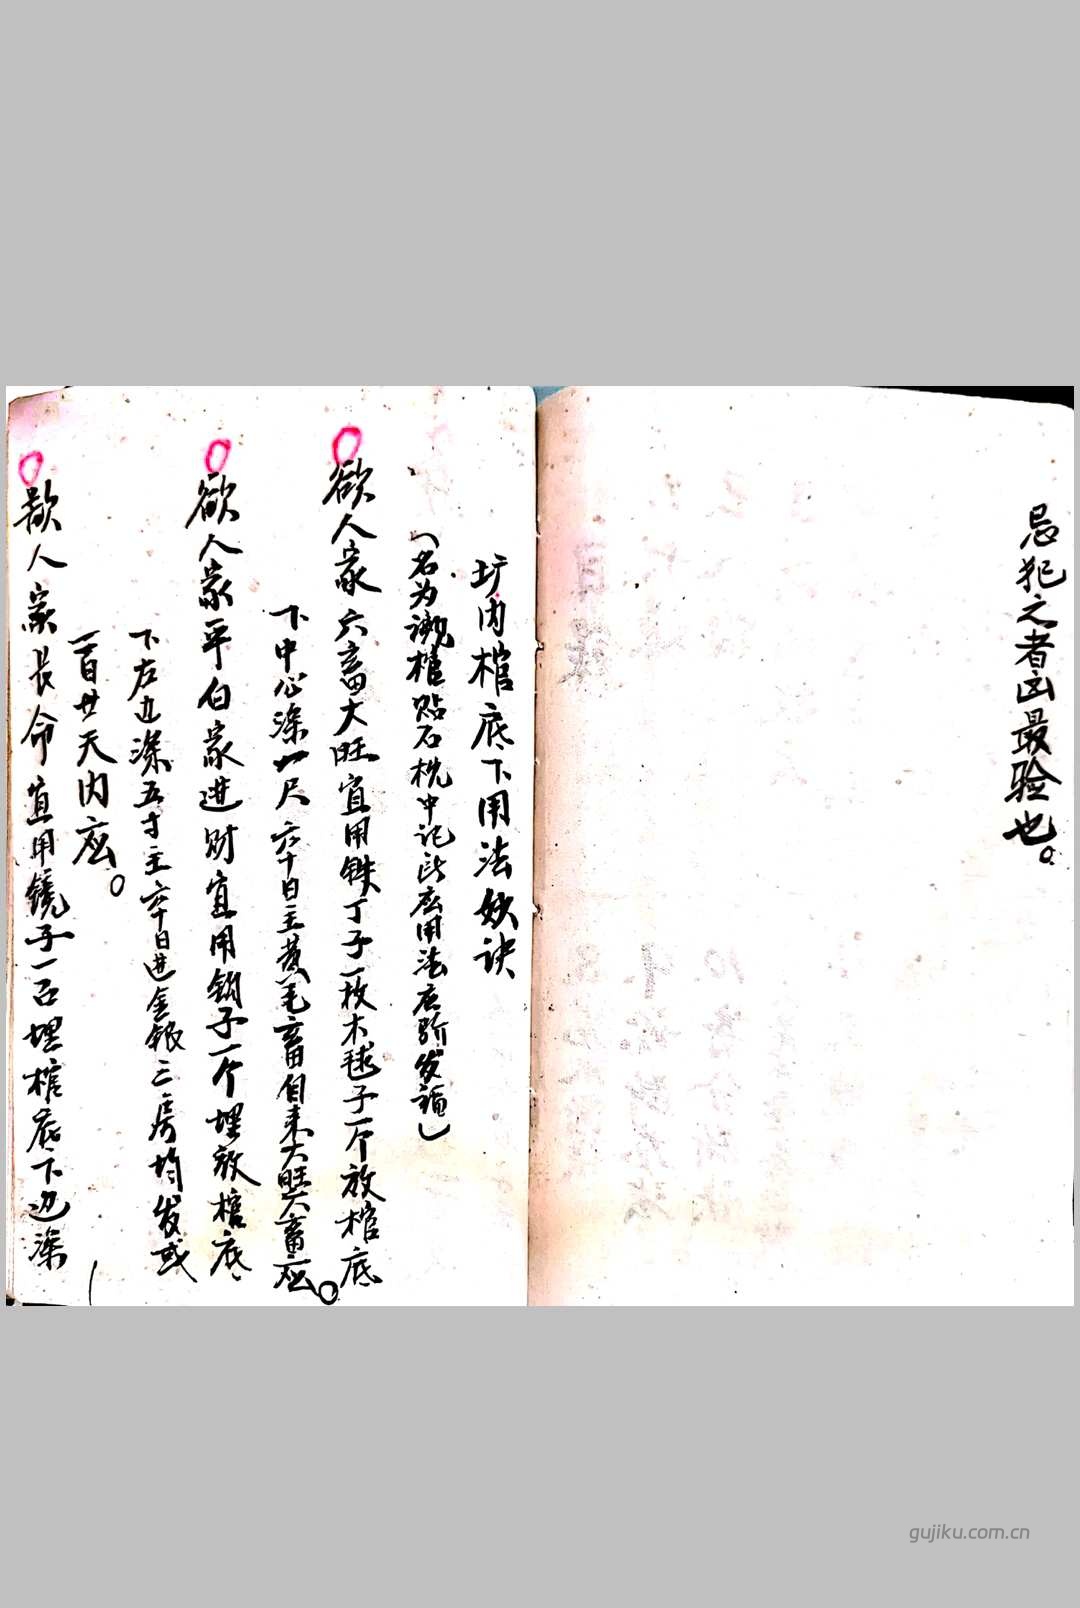 忌犯之者凶最验也。
圹内棺底下用法妙诀
(名为 棺贴石 中记 应用法应验发福)
欲人家六畜大旺宜用铁丁子一枚木毬子一个放棺底
下中心深一尺六十日主黄毛畜自来大旺六畜应。
欲人家平白家进财宜用钩子一个埋放棺底
下左边深五寸主六十日进金银三房均发或
一百廿天内应。
欲人家长命宜用镜子一 埋棺底下边深
gujiku.com.cn